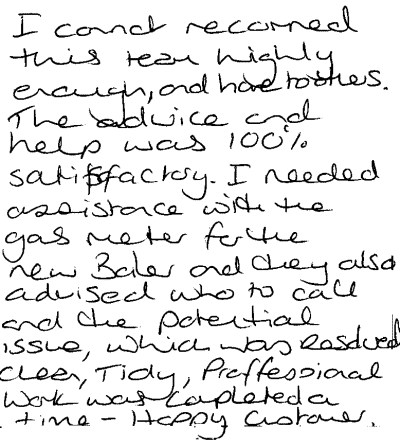 I cannot recomned
this team highly
enough, and have to others.
The advice and
help was 100%
satisfactory. I needed
assistance with the
gas meter for the
new Boiler and they also
advised who to call
and the potential
issue, which was resolved
Clean, Tidy, Proffessional
work was completed
time - Happy Customer.